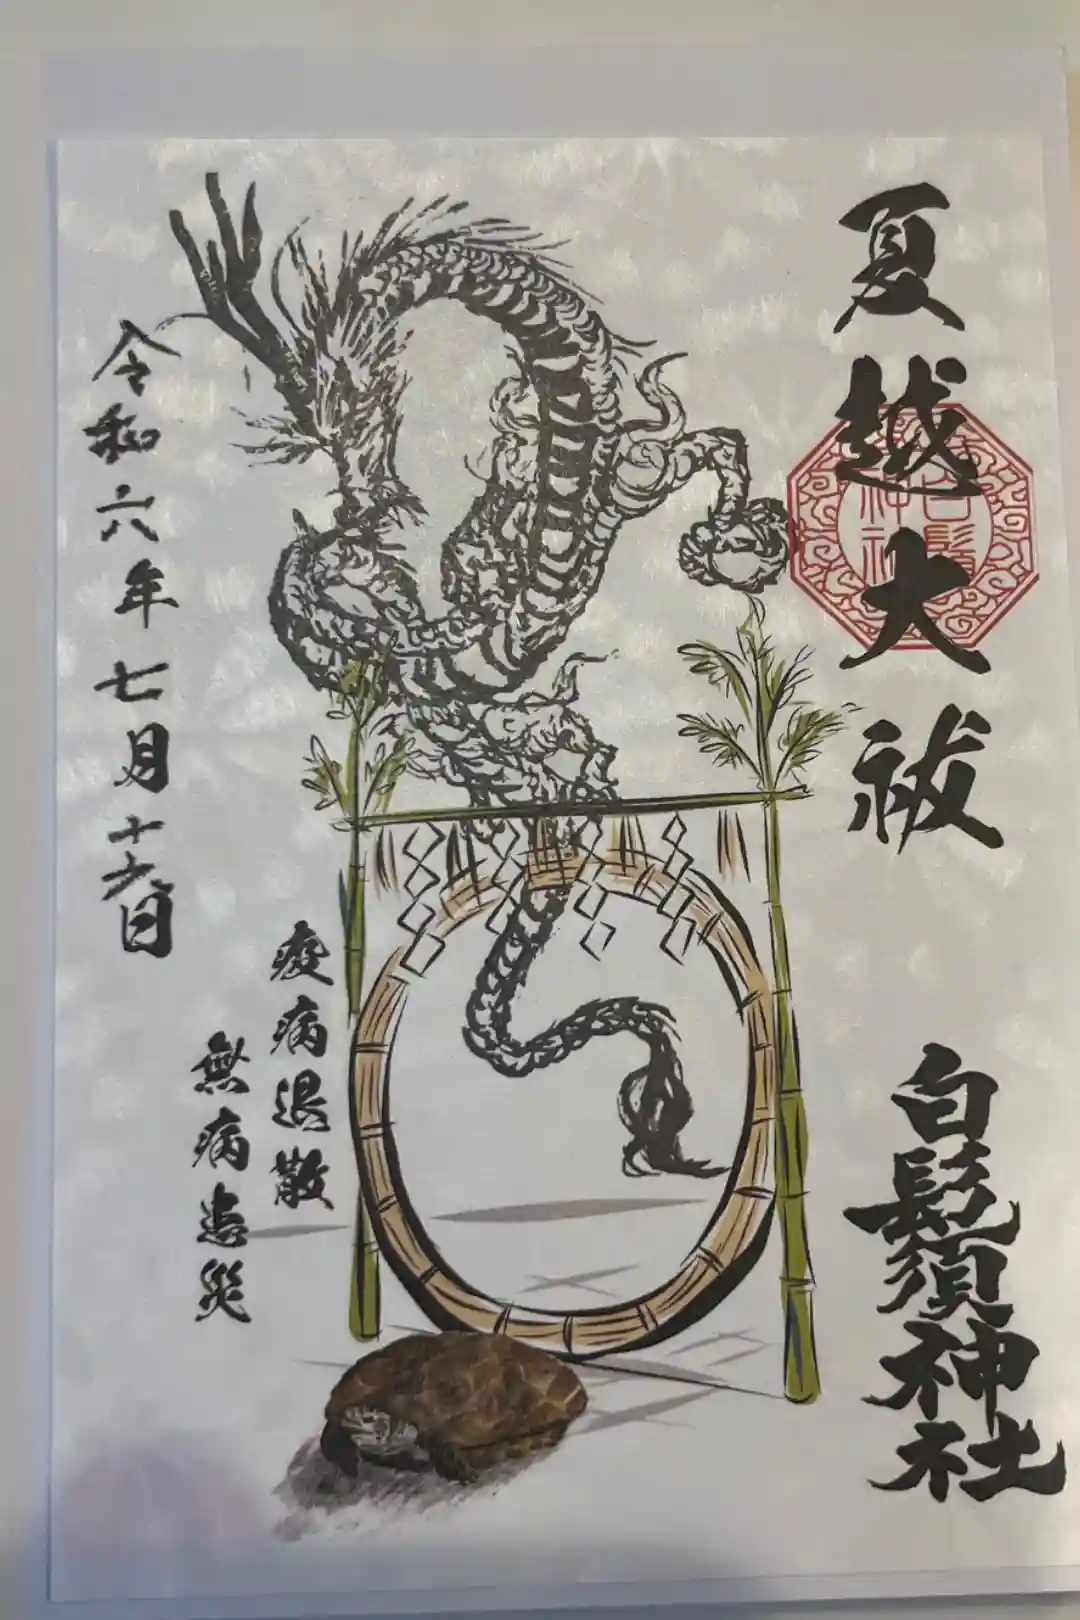 夏越大祓
白鬚神社
白鬚
神社
疫病退散
無病息災
令和六年七月十六日